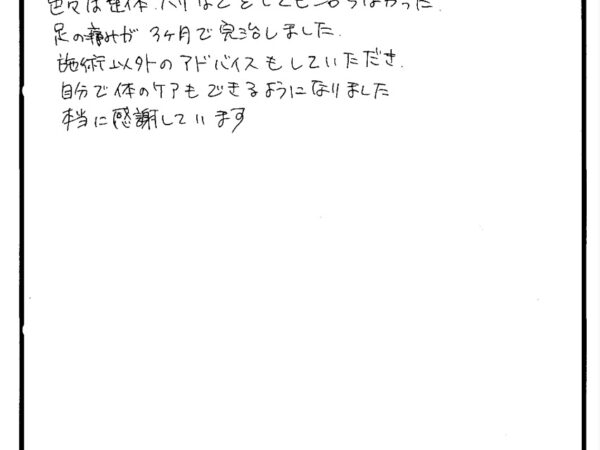 色々な整体.ハリなどをしても治らなかった.
足の痛みが3ヶ月で完治しました.
施術以外のアドバイスもしていただき.
自分で体のケアもできるようになりました
本当に感謝しています